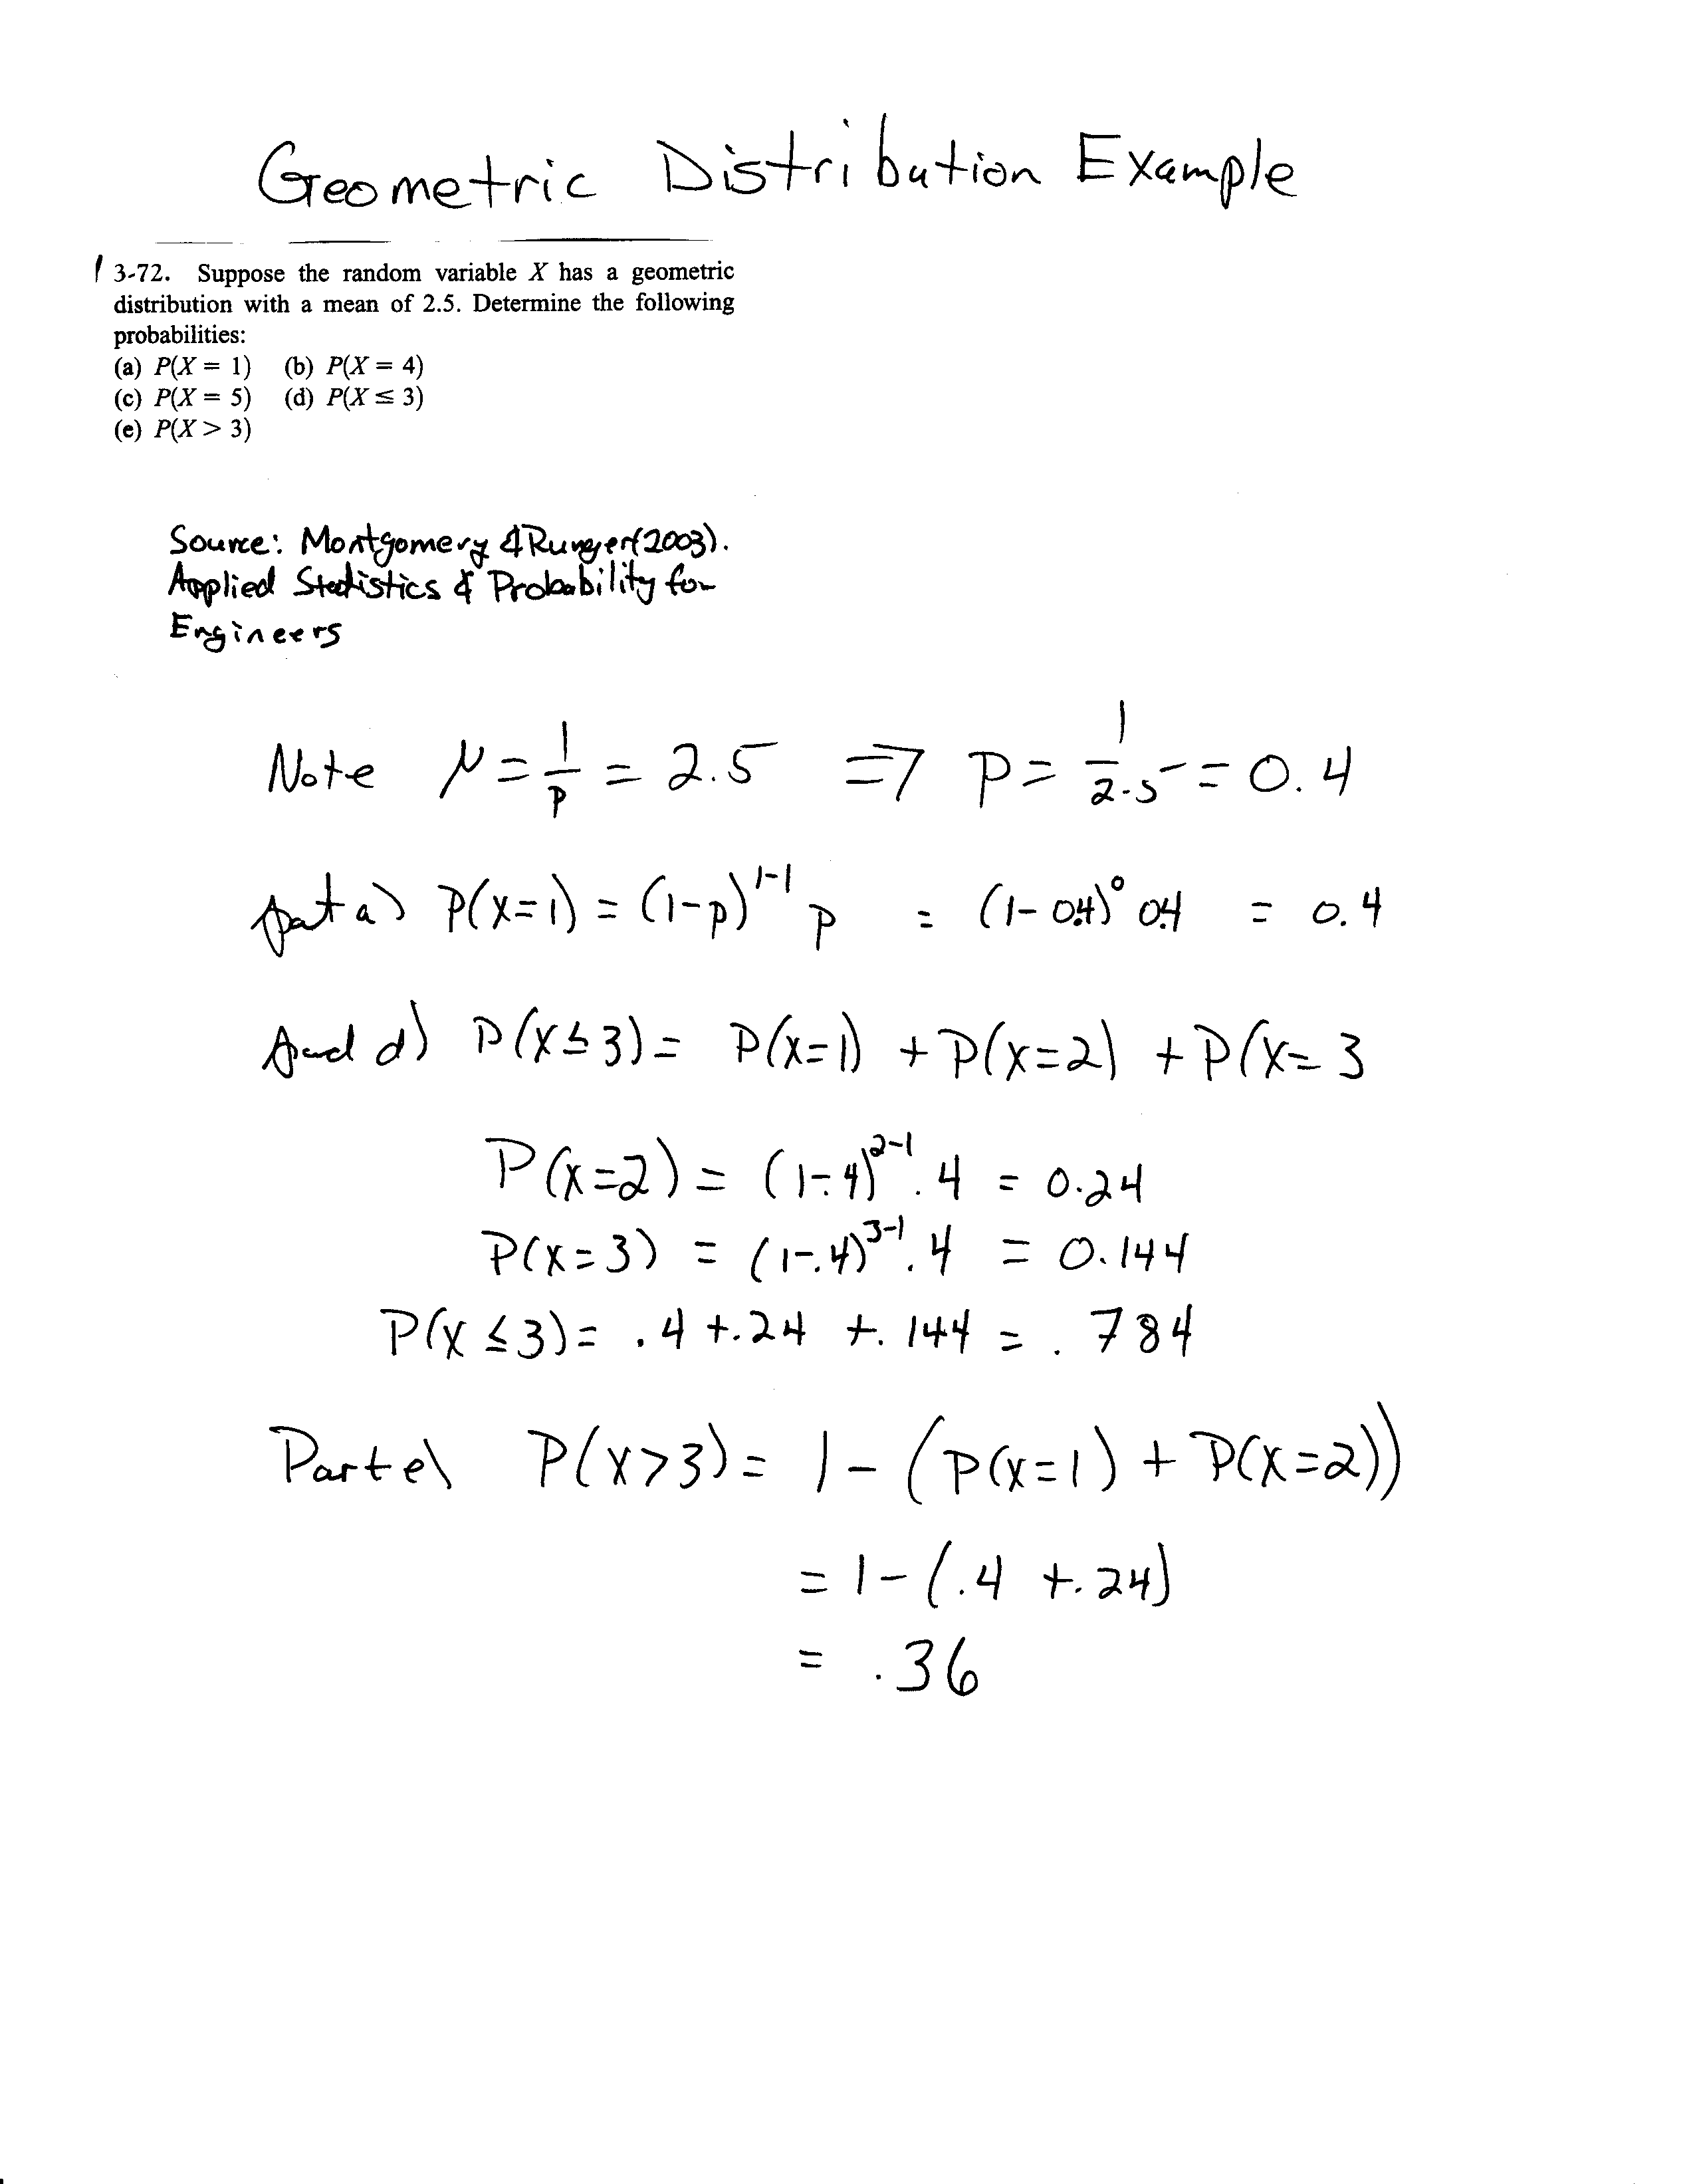 Geometric Distribution Example
3-72. Suppose the random variable X has a geometric
distribution with a mean of 2.5. Determine the following
probabilities:
(a) P(X = 1) (b) P(X = 4)
(c) P(X = 5) (d) P(X ≤ 3)
(e) P(X > 3)
Source: Montgomery & Runger (2003).
Applied Statistics & Probability for
Engineers
Note μ = 1/p = 2.5 ⇒ p = 1/2.5 = 0.4
part a) P(x=1) = (1-p)^{1-1} p = (1-0.4)^0 0.4 = 0.4
d) P(x≤3) = P(x=1) + P(x=2) + P(x=3
P(x=2) = (1-.4)^{2-1} .4 = 0.24
P(x=3) = (1-.4)^{3-1} .4 = 0.144
P(x≤3) = .4 +.24 +.144 = .784
Part e) P(x>3) = 1 - (P(x=1) + P(x=2))
= 1-(.4 +.24)
= .36